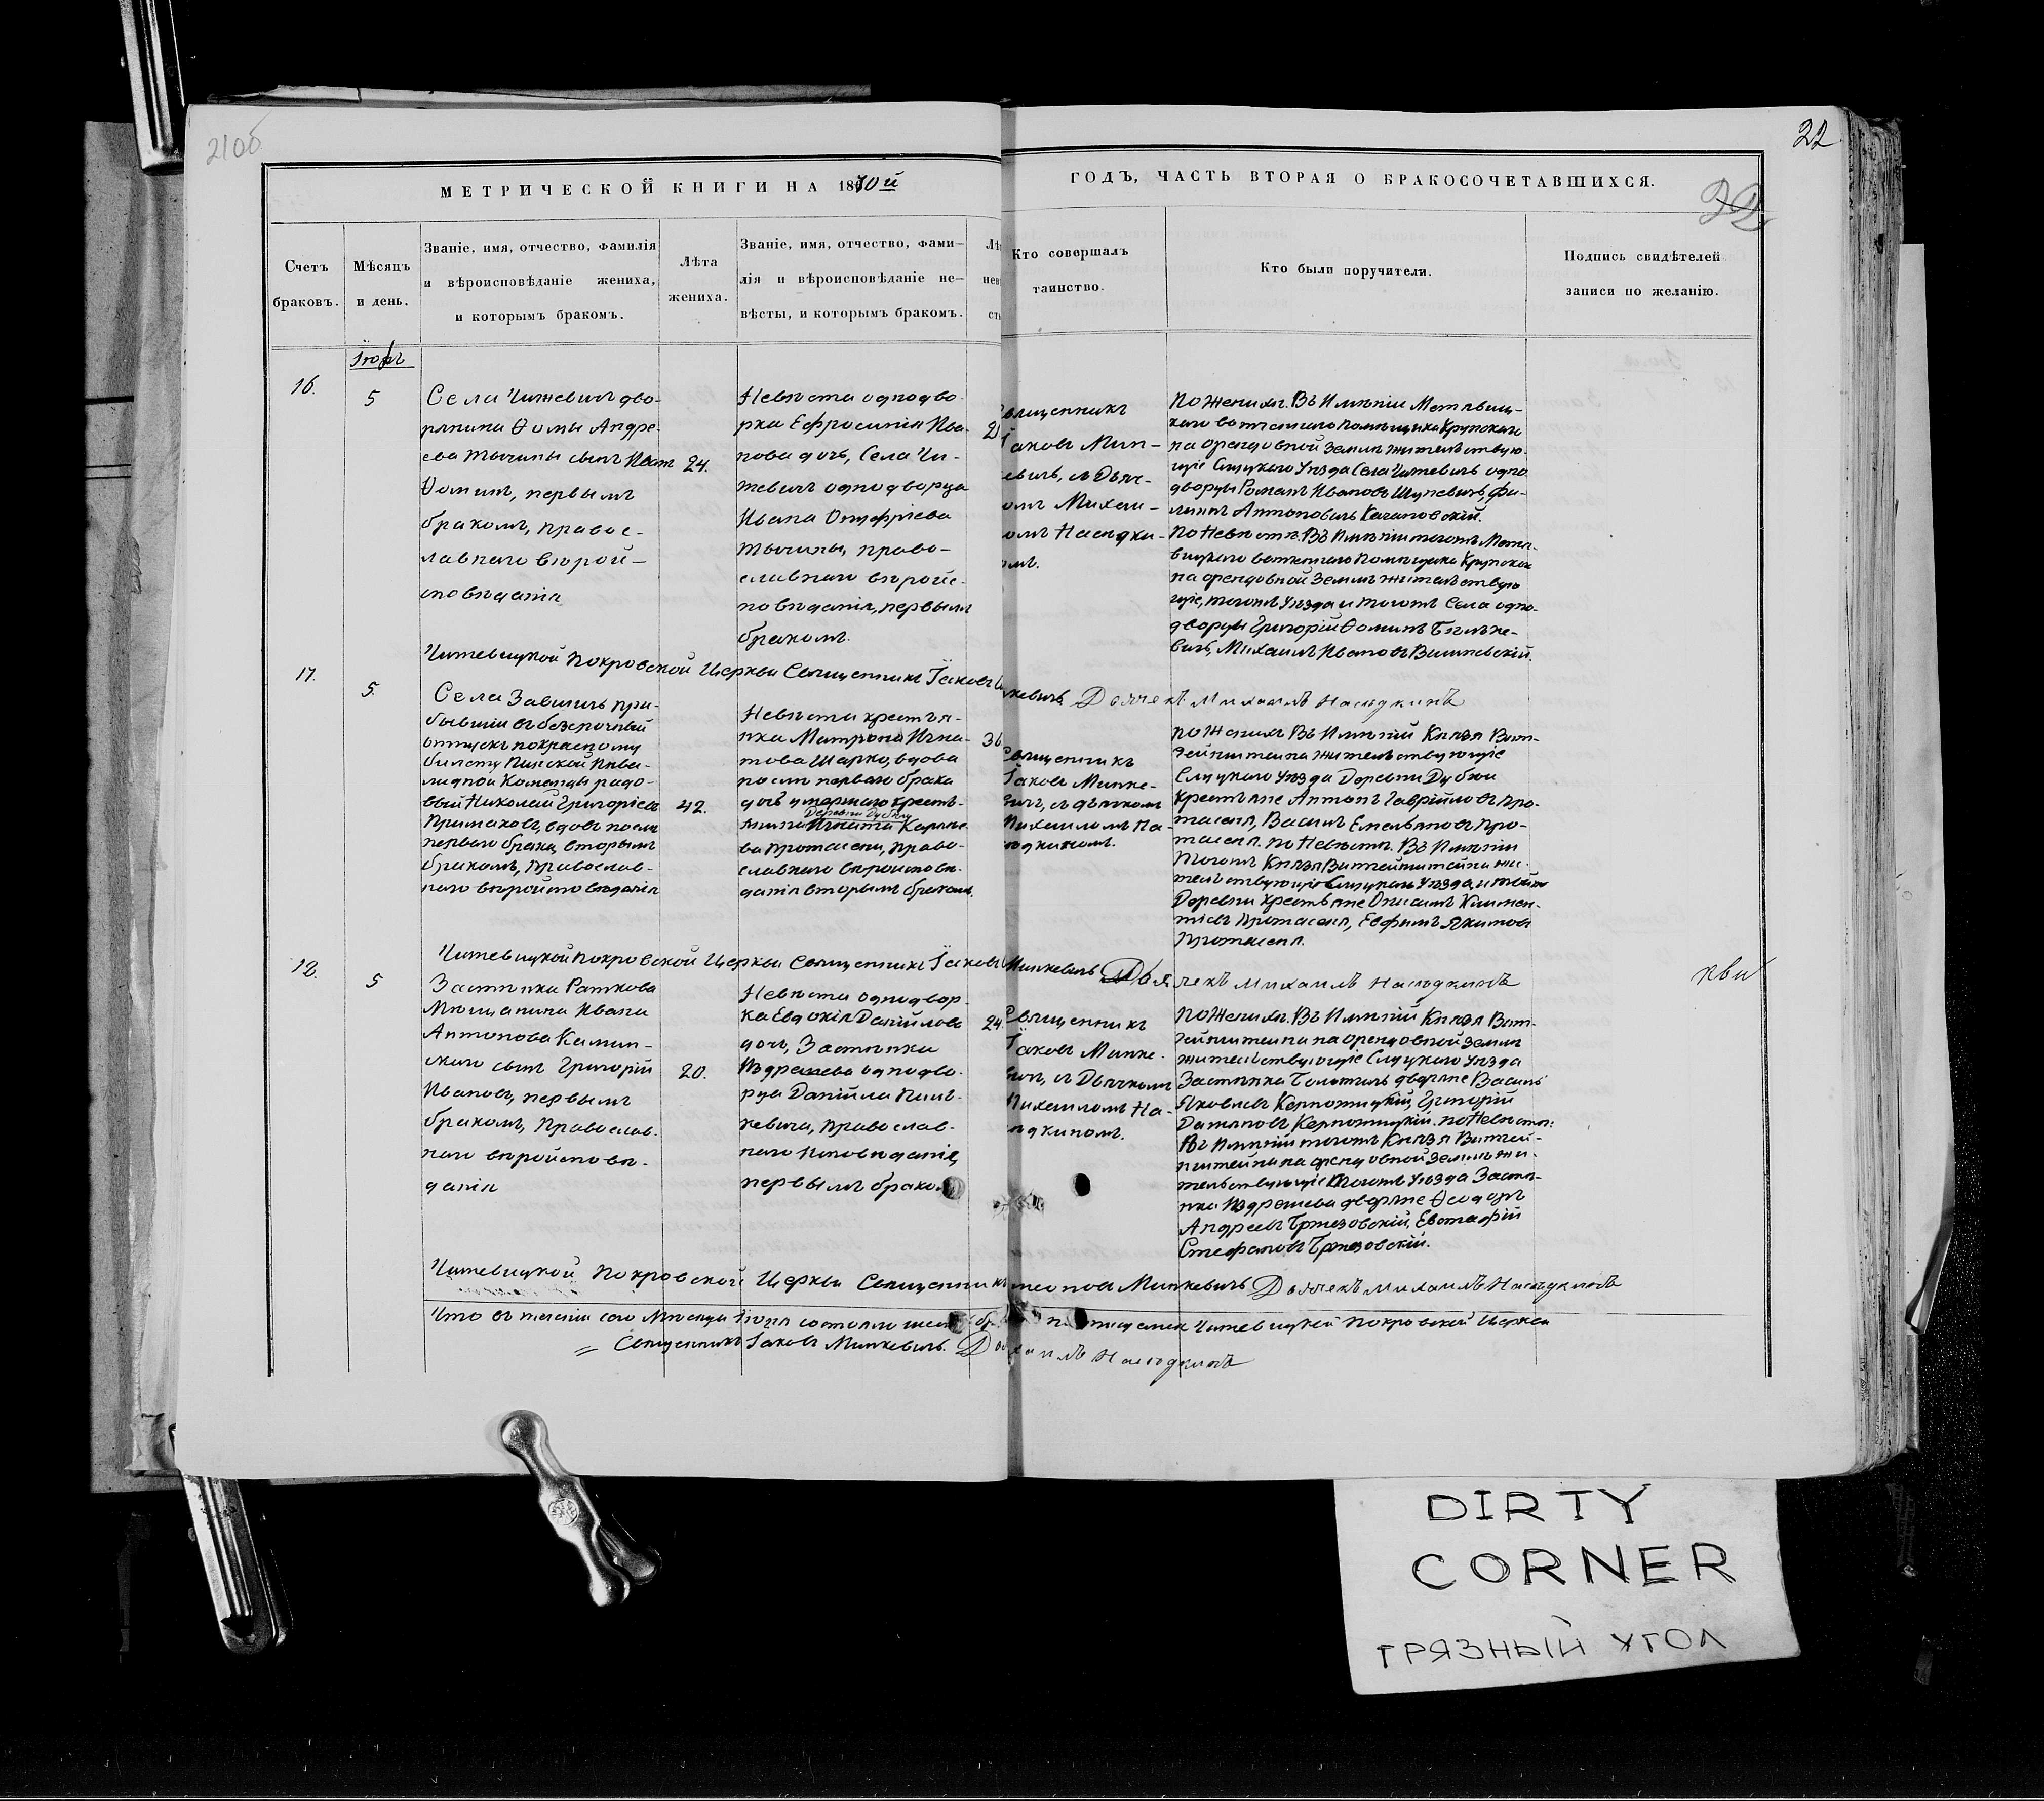 21об
22
22
МЕТРИЧЕСКОЙ КНИГИ НА 1870й
ГОДЪ, ЧАСТЬ ВТОРАЯ О БРАКОСОЧЕТАВШИХСЯ.
Счетъ
браковъ.
Мѣсяцъ
и день.
Званіе, имя, отчество, фамилія
и вѣроисповѣданіе жениха,
и которымъ бракомъ.
Лѣта
жениха.
Званіе, имя, отчество, фами–
лія и вѣроисповѣданіе не–
вѣсты, и которымъ бракомъ.
Лѣ
нев
ст
Кто совершалъ
таинство.
Кто были поручители.
Подпись свидѣтелей
записи по желанію.
16.
5
Села Чижевичъ дво-
рянина Ѳомы Андре-
ева Тычины сынъ Иванъ
Ѳоминъ, первымъ
бракомъ, правос-
лавнаго вѣрои-
сповѣданія
24.
Невѣста однодво-
рка Ефросинія Ива-
нова дочь, Села Чи-
жевичъ однодворца
Ивана Онуфріева
Тычины, право-
славнаго вѣроис-
повѣданія, первымъ
бракомъ.
2
Священникъ
Іаковъ Мин-
кевичъ, съ Дьяч-
омъ Михаи-
омъ Насѣдки-
мъ.
По Женихѣ. Въ Имѣніи
помѣщика Крупскаго
на арендовной Землѣ жительству-
щіе Слуцкаго Уѣзда Села Чижевичъ одно-
дворцы Романъ Ивановъ Шуневичъ, Фи-
липъ Антоновичъ Качановскій.
По Невѣстѣ. Въ Имѣніи тогожъ
Помѣщика Крупскаго
на арендовной Землѣ жительствую
щіе, тогожъ Уѣзда и тогожъ Села одно-
дворцы Григорій Ѳоминъ
Михаилъ Ивановъ
Чижевицкой Покровской Церкви Священникъ Іаковъ Минкевичъ Дьячекъ Михаилъ Насѣдкинъ
17.
5.
Села Завшицъ при-
бывшій въ безсрочный
отпускъ по красному
билету Пинской Инва-
лидной Команды рядо-
вый Николай Григорьевъ
Примаковъ, вдовъ послѣ
перваго брака, вторымъ
бракомъ, Православ-
наго вѣроисповѣданія
42.
Невѣста крестья-
нка Матрона Игна-
това Шарко, вдова
послѣ перваго брака
дочь умершаго кресть-
Деревни Дубеи
янина Игната
ва Протасени, право-
славнаго вѣроисповѣ-
данія вторымъ бракомъ.
36
Священникъ
Іаковъ Минке-
вичъ, съ дьячкомъ
Михаиломъ На-
ѣдкиномъ.
По Женихѣ Въ Имѣній Князя Вит-
гейнштейна жительствующіе
Слуцкаго Уѣзда Деревни Дубеи
крестьяне Антонъ Гавріиловъ Про-
тасеня, Василь Емельяновъ Про-
тасеня. По Невѣстѣ. Въ Имѣніи
Тогожъ Князя Витгейнштейна жи-
тельствующіе Слуцкаго Уѣзда, и той же
Деревни крестьяне Онисимъ Климен-
тіевъ Протасеня, Евфимъ Якимовъ
Протасеня.
Чижевицкой Покровской Церкви Священникъ Іаковъ Минкевичъ Дьячекъ Михаилъ Насѣдкинъ
18.
5
Застѣнка Раткова
Мѣщанина Ивана
Антонова Камин-
скаго сынъ Григорій
Ивановъ, первымъ
бракомъ, Православ-
наго вѣроисповѣ-
данія
20.
Невѣста однодвор-
ка Евдокія Даніилова
дочь, Застѣнка
Издрешева однодво-
рца Даніила
кевича, Православ-
наго Исповѣданія,
первымъ брако
24.
Священникъ
Іаковъ Минке-
вичъ, съ Дьячкомъ
Михаиломъ На-
ѣдкиномъ.
По Женихѣ. Въ Имѣній Князя Вит-
гейнштейна на арендовной Землѣ
жительствующіе Слуцкаго Уѣзда
Застѣнка дворяне Василь
Яковлевъ Керножицкій, Григорій
Керножицкій. По Невѣстѣ:
Въ Имѣній тогожъ Князя Витгей-
нштейна на арендовной Землѣ жи-
тельствующіе Тогожъ Уѣзда Застѣ-
нка Издрешева дворяне Ѳеодоръ
Андреевъ Бржезовскій, Евстафій
Стефановъ Бржезовскій.
Чижевицкой Покровской Церкви Священникъ Минкевичъ Дьячекъ Михаилъ Насѣдкинъ
Что въ теченіи сего Мѣсяца состояло Чижевицкой Покровской Церкви
Священникъ Іаковъ Минкевичъ. Насѣдкинъ
DIRTY
CORNER
ГРЯЗНЫЙ УГОЛ